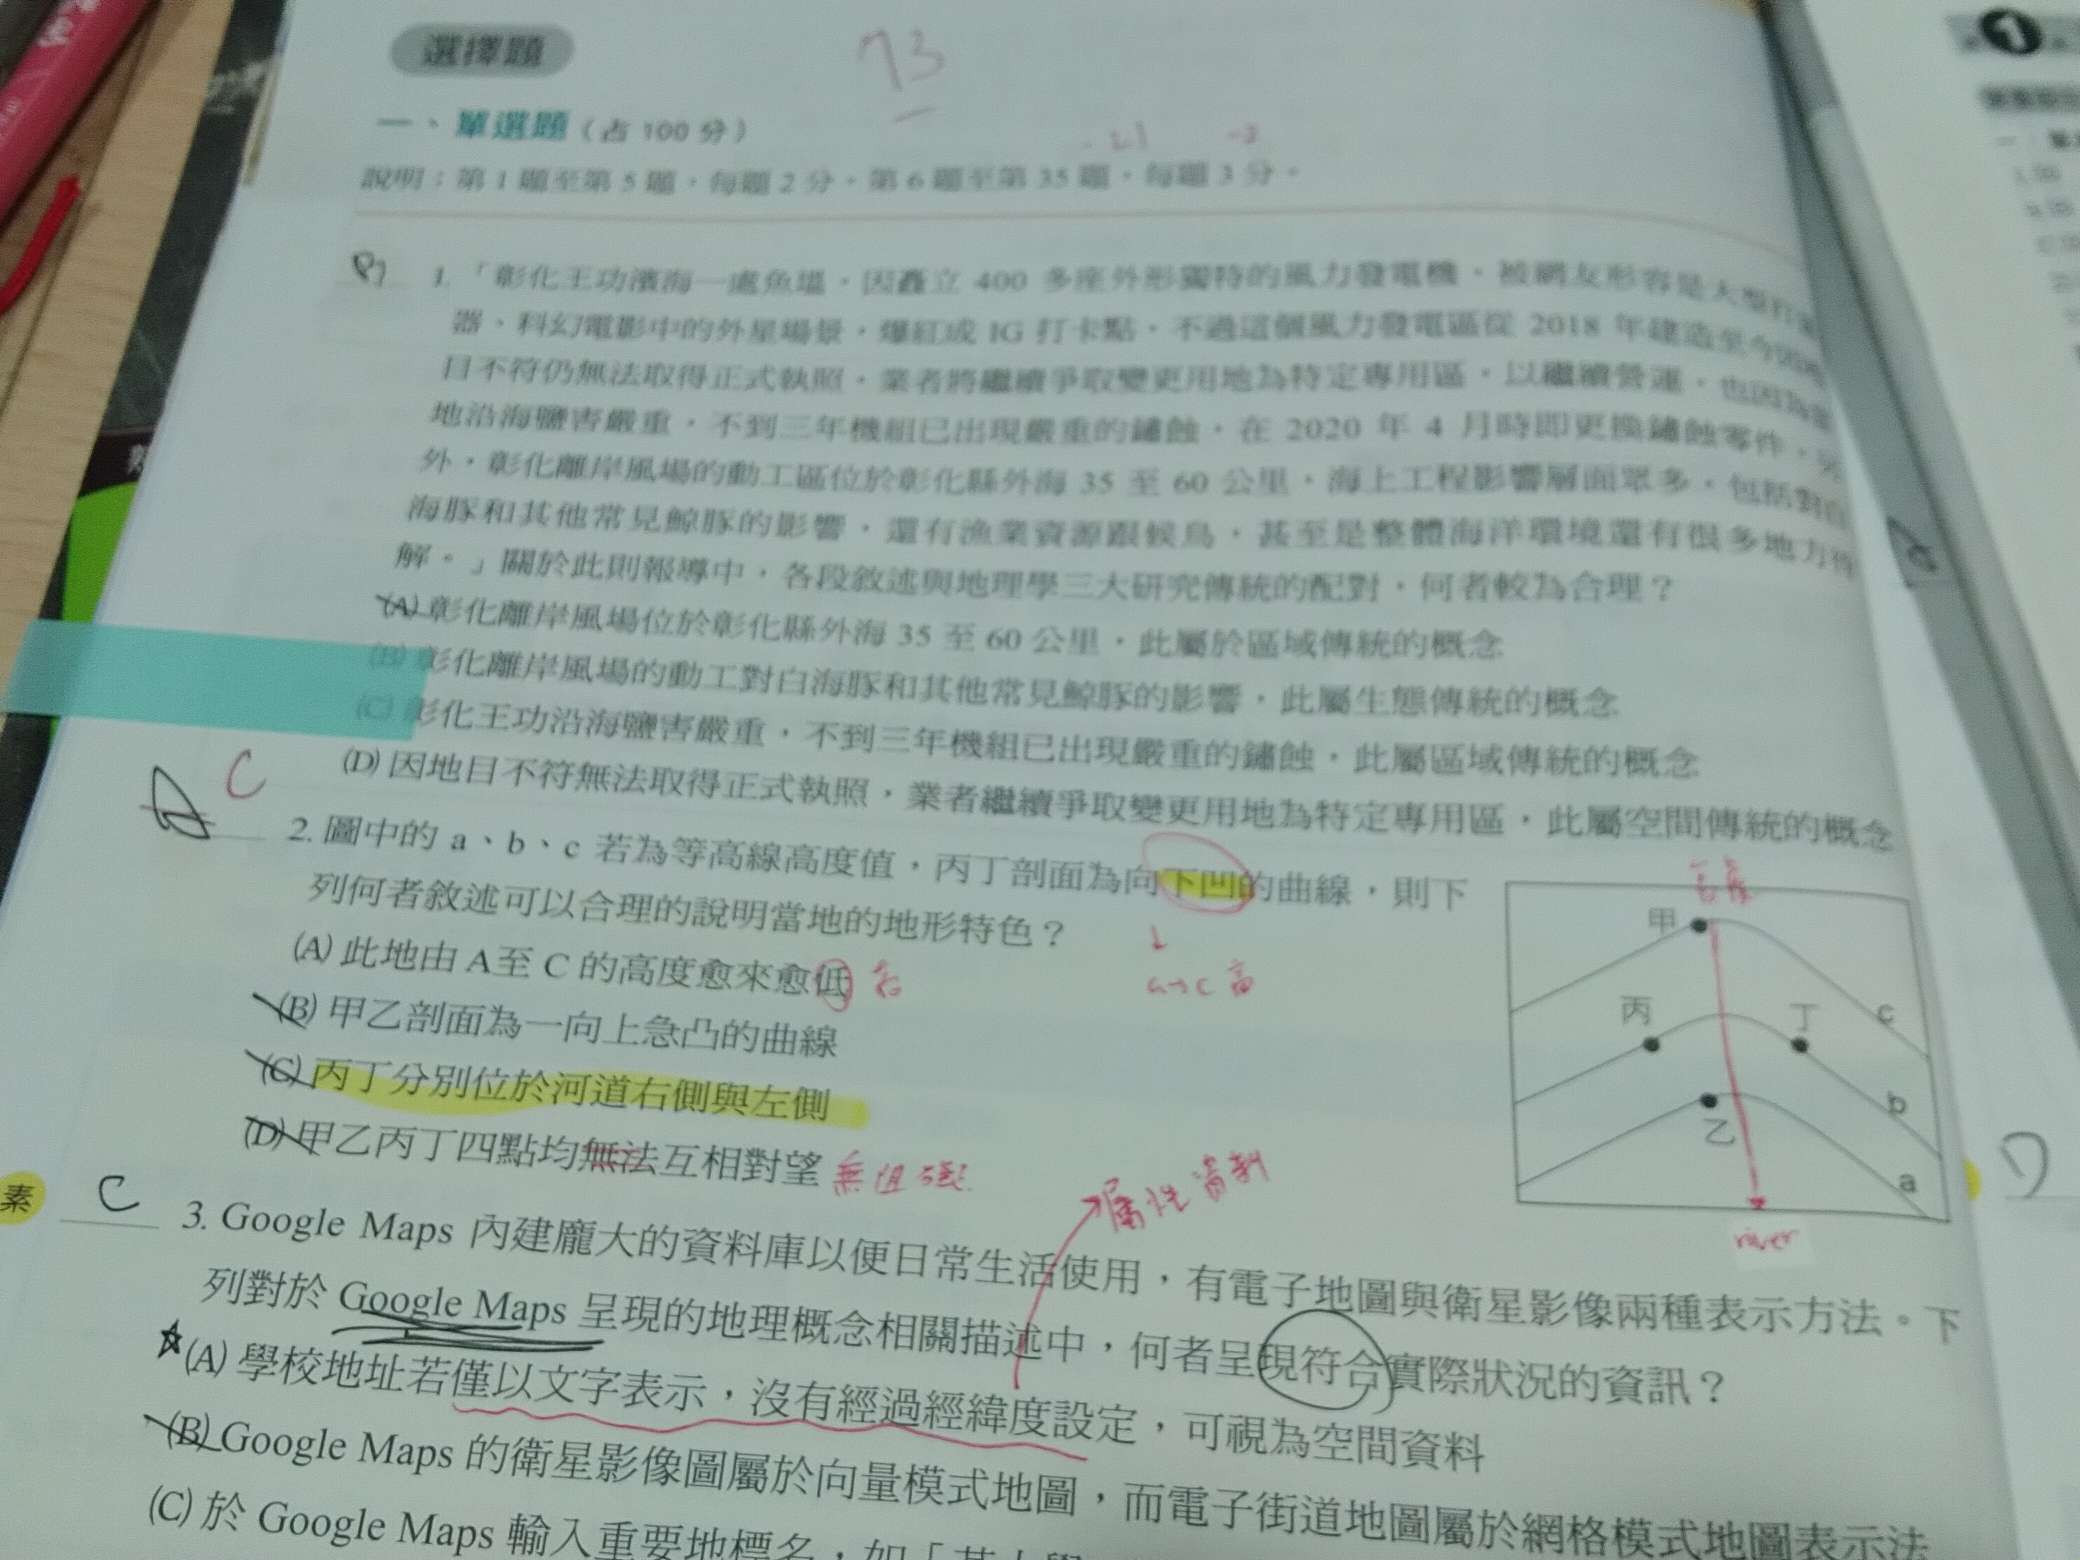 選擇題
73
一、單選題（占 100 分）
說明：第 1 題至第 5 題，每題 2 分。第 6 題至第 35 題，每題 3 分。
1. 「彰化王功濱海一處魚塭，因矗立 400 多座外形獨特的風力發電機，被網友形容是大型打蛋
器、科幻電影中的外星場景，爆紅成 IG 打卡點，不過這個風力發電區從 2018 年建造至今因地
目不符仍無法取得正式執照，業者將繼續爭取變更用地為特定專用區，以繼續營運，也因為當
地沿海鹽害嚴重，不到三年機組已出現嚴重的鏽蝕，在 2020 年 4 月時即更換鏽蝕零件，另
外，彰化離岸風場的動工區位於彰化縣外海 35 至 60 公里，海上工程影響層面眾多，包括對白
海豚和其他常見鯨豚的影響，還有漁業資源跟候鳥，甚至是整體海洋環境還有很多地方待
解。」關於此則報導中，各段敘述與地理學三大研究傳統的配對，何者較為合理？
(A) 彰化離岸風場位於彰化縣外海 35 至 60 公里，此屬於區域傳統的概念
(B) 彰化離岸風場的動工對白海豚和其他常見鯨豚的影響，此屬生態傳統的概念
(C) 彰化王功沿海鹽害嚴重，不到三年機組已出現嚴重的鏽蝕，此屬區域傳統的概念
(D) 因地目不符無法取得正式執照，業者繼續爭取變更用地為特定專用區，此屬空間傳統的概念
C
2. 圖中的 a、b、c 若為等高線高度值，丙丁剖面為向下凹的曲線，則下
列何者敘述可以合理的說明當地的地形特色？
a→c 高
(A) 此地由 A至 C 的高度愈來愈低 高
(B) 甲乙剖面為一向上急凸的曲線
(C) 丙丁分別位於河道右側與左側
(D) 甲乙丙丁四點均無法互相對望 無阻礙
甲
丙
丁
c
b
乙
a
river
屬性資料
素
C
3. Google Maps 內建龐大的資料庫以便日常生活使用，有電子地圖與衛星影像兩種表示方法。下
列對於 Google Maps 呈現的地理概念相關描述中，何者呈現符合實際狀況的資訊？
(A) 學校地址若僅以文字表示，沒有經過經緯度設定，可視為空間資料
(B) Google Maps 的衛星影像圖屬於向量模式地圖，而電子街道地圖屬於網格模式地圖表示法
(C) 於 Google Maps 輸入重要地標名，如「
1
D